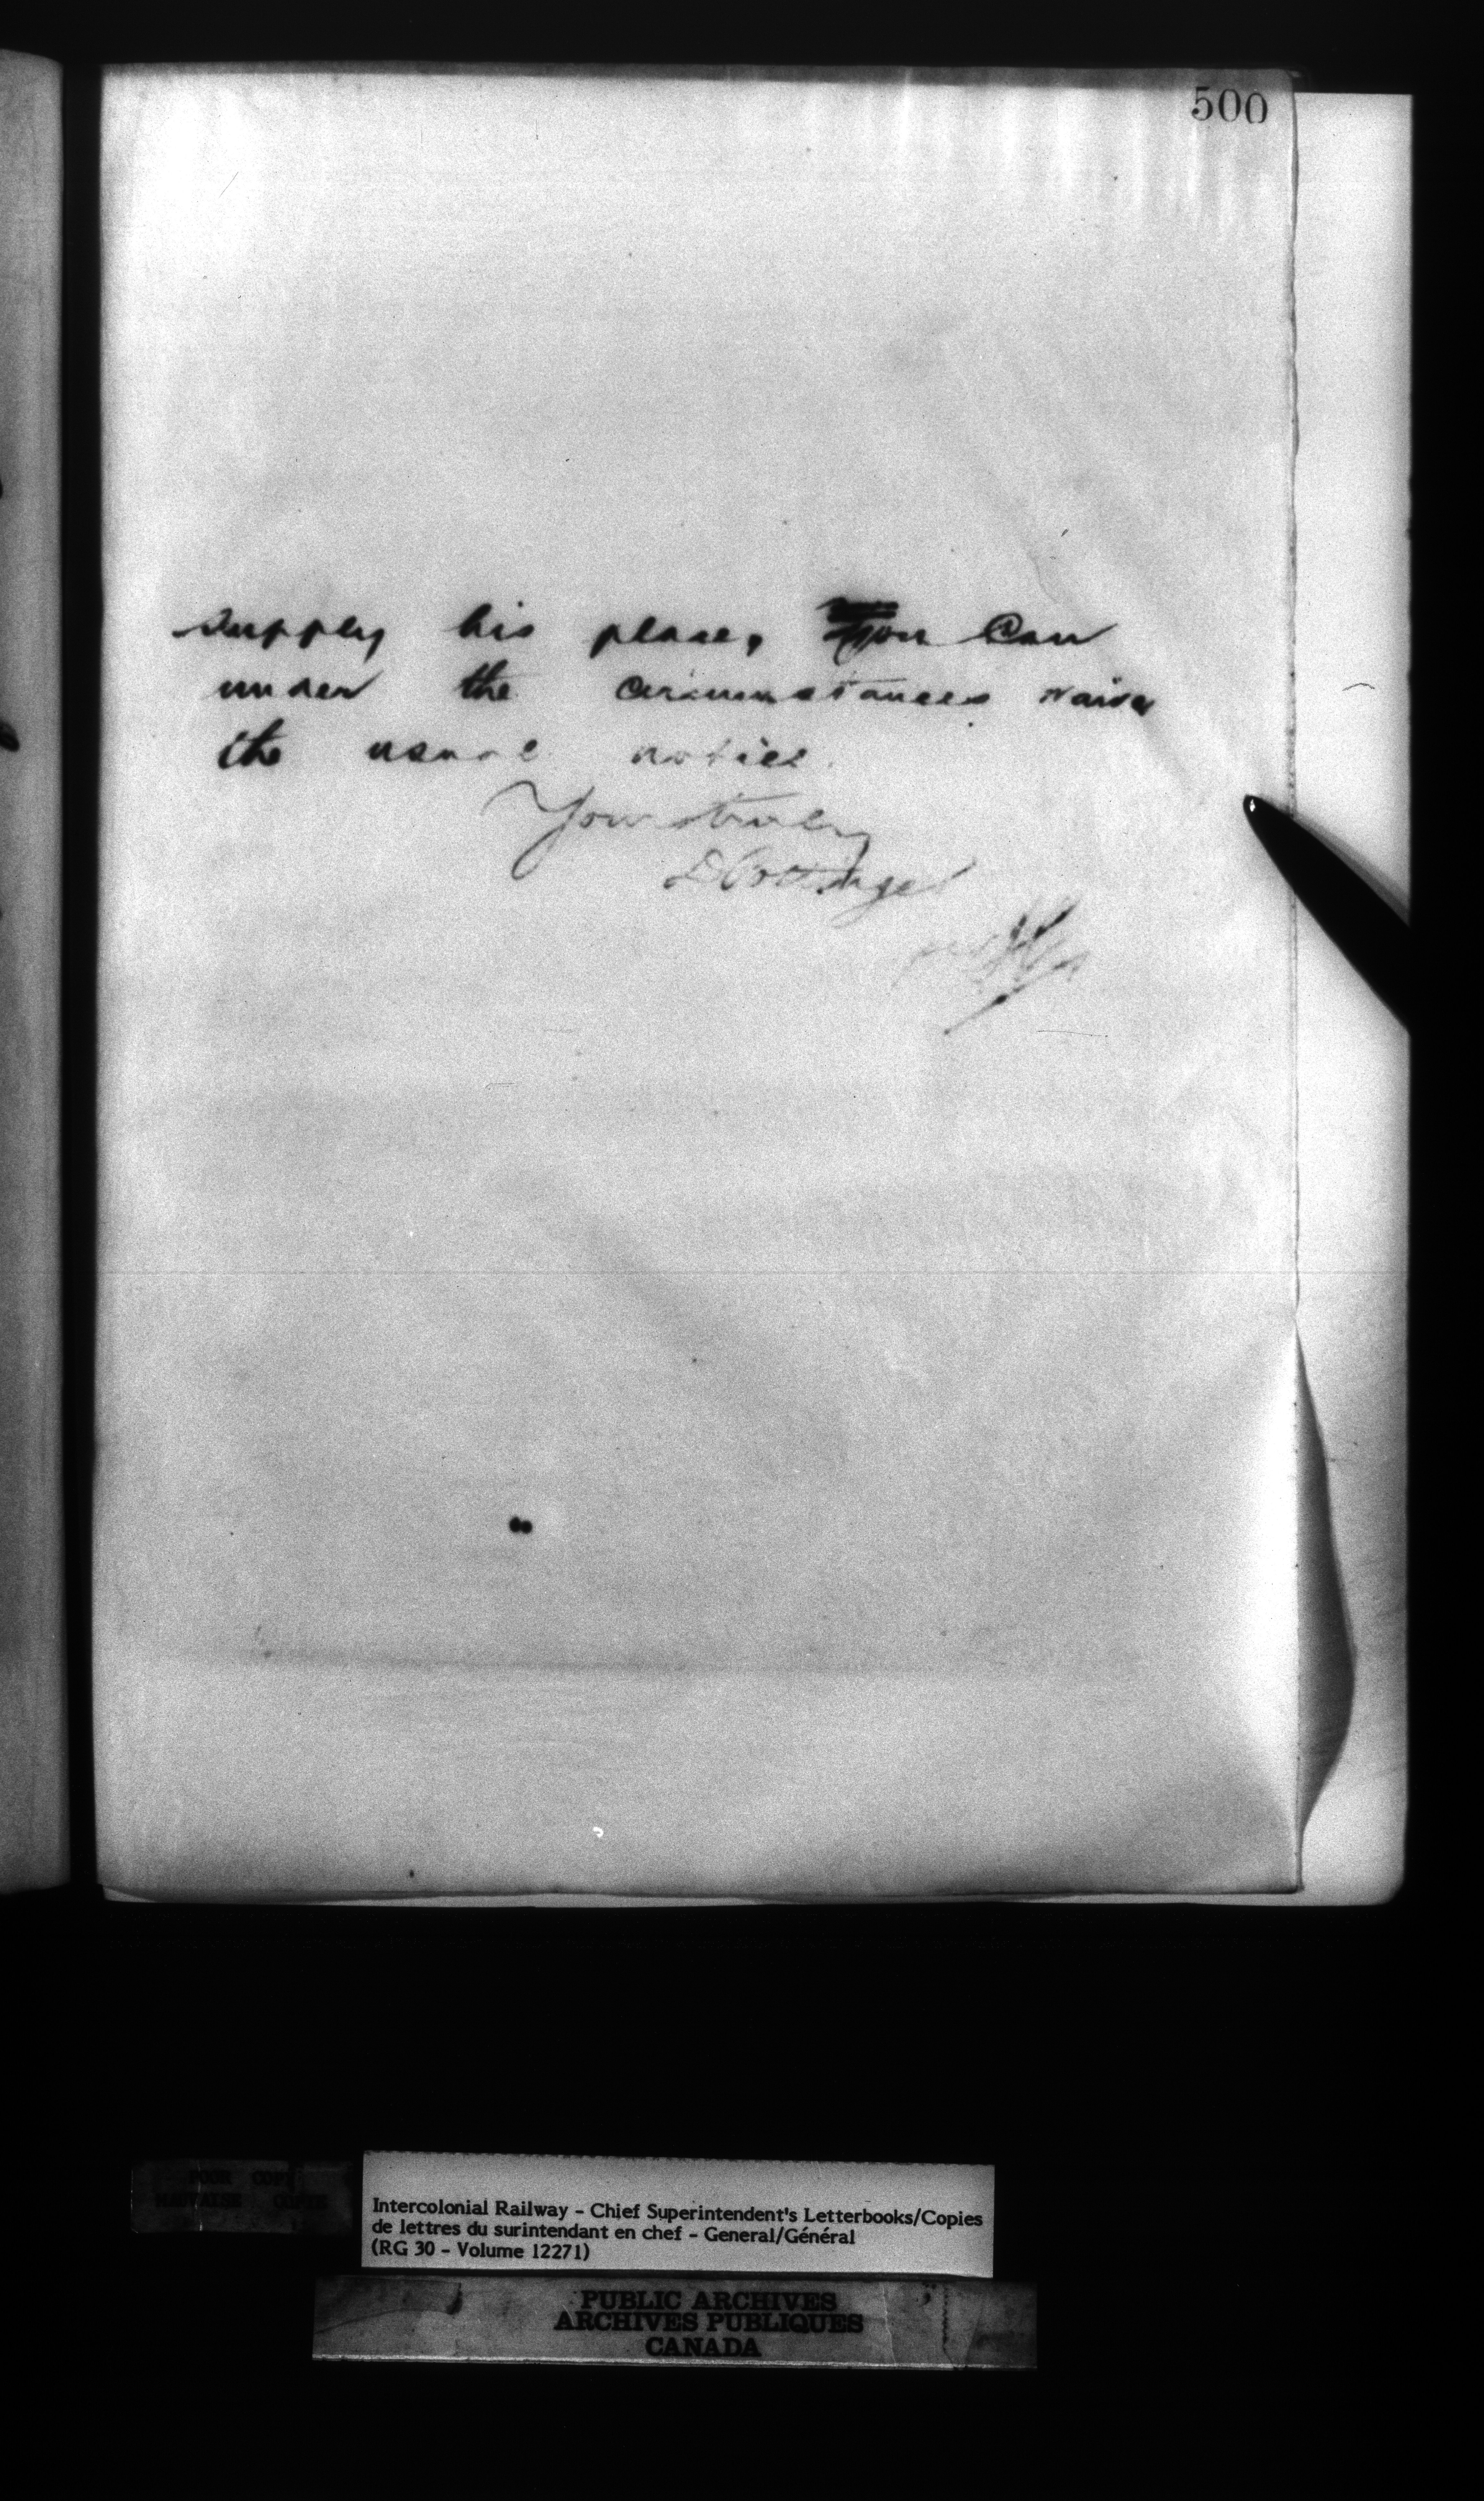 500
supply his place, You Can
under the circumstances waive
the usual notice.
Yours truly
D Pottinger
per
POOR COPY
MAUVAISE COPIE
Intercolonial Railway - Chief Superintendent's Letterbooks/Copies
de lettres du surintendant en chef - General/Général
(RG 30 - Volume 12271)
PUBLIC ARCHIVES
ARCHIVES PUBLIQUES
CANADA